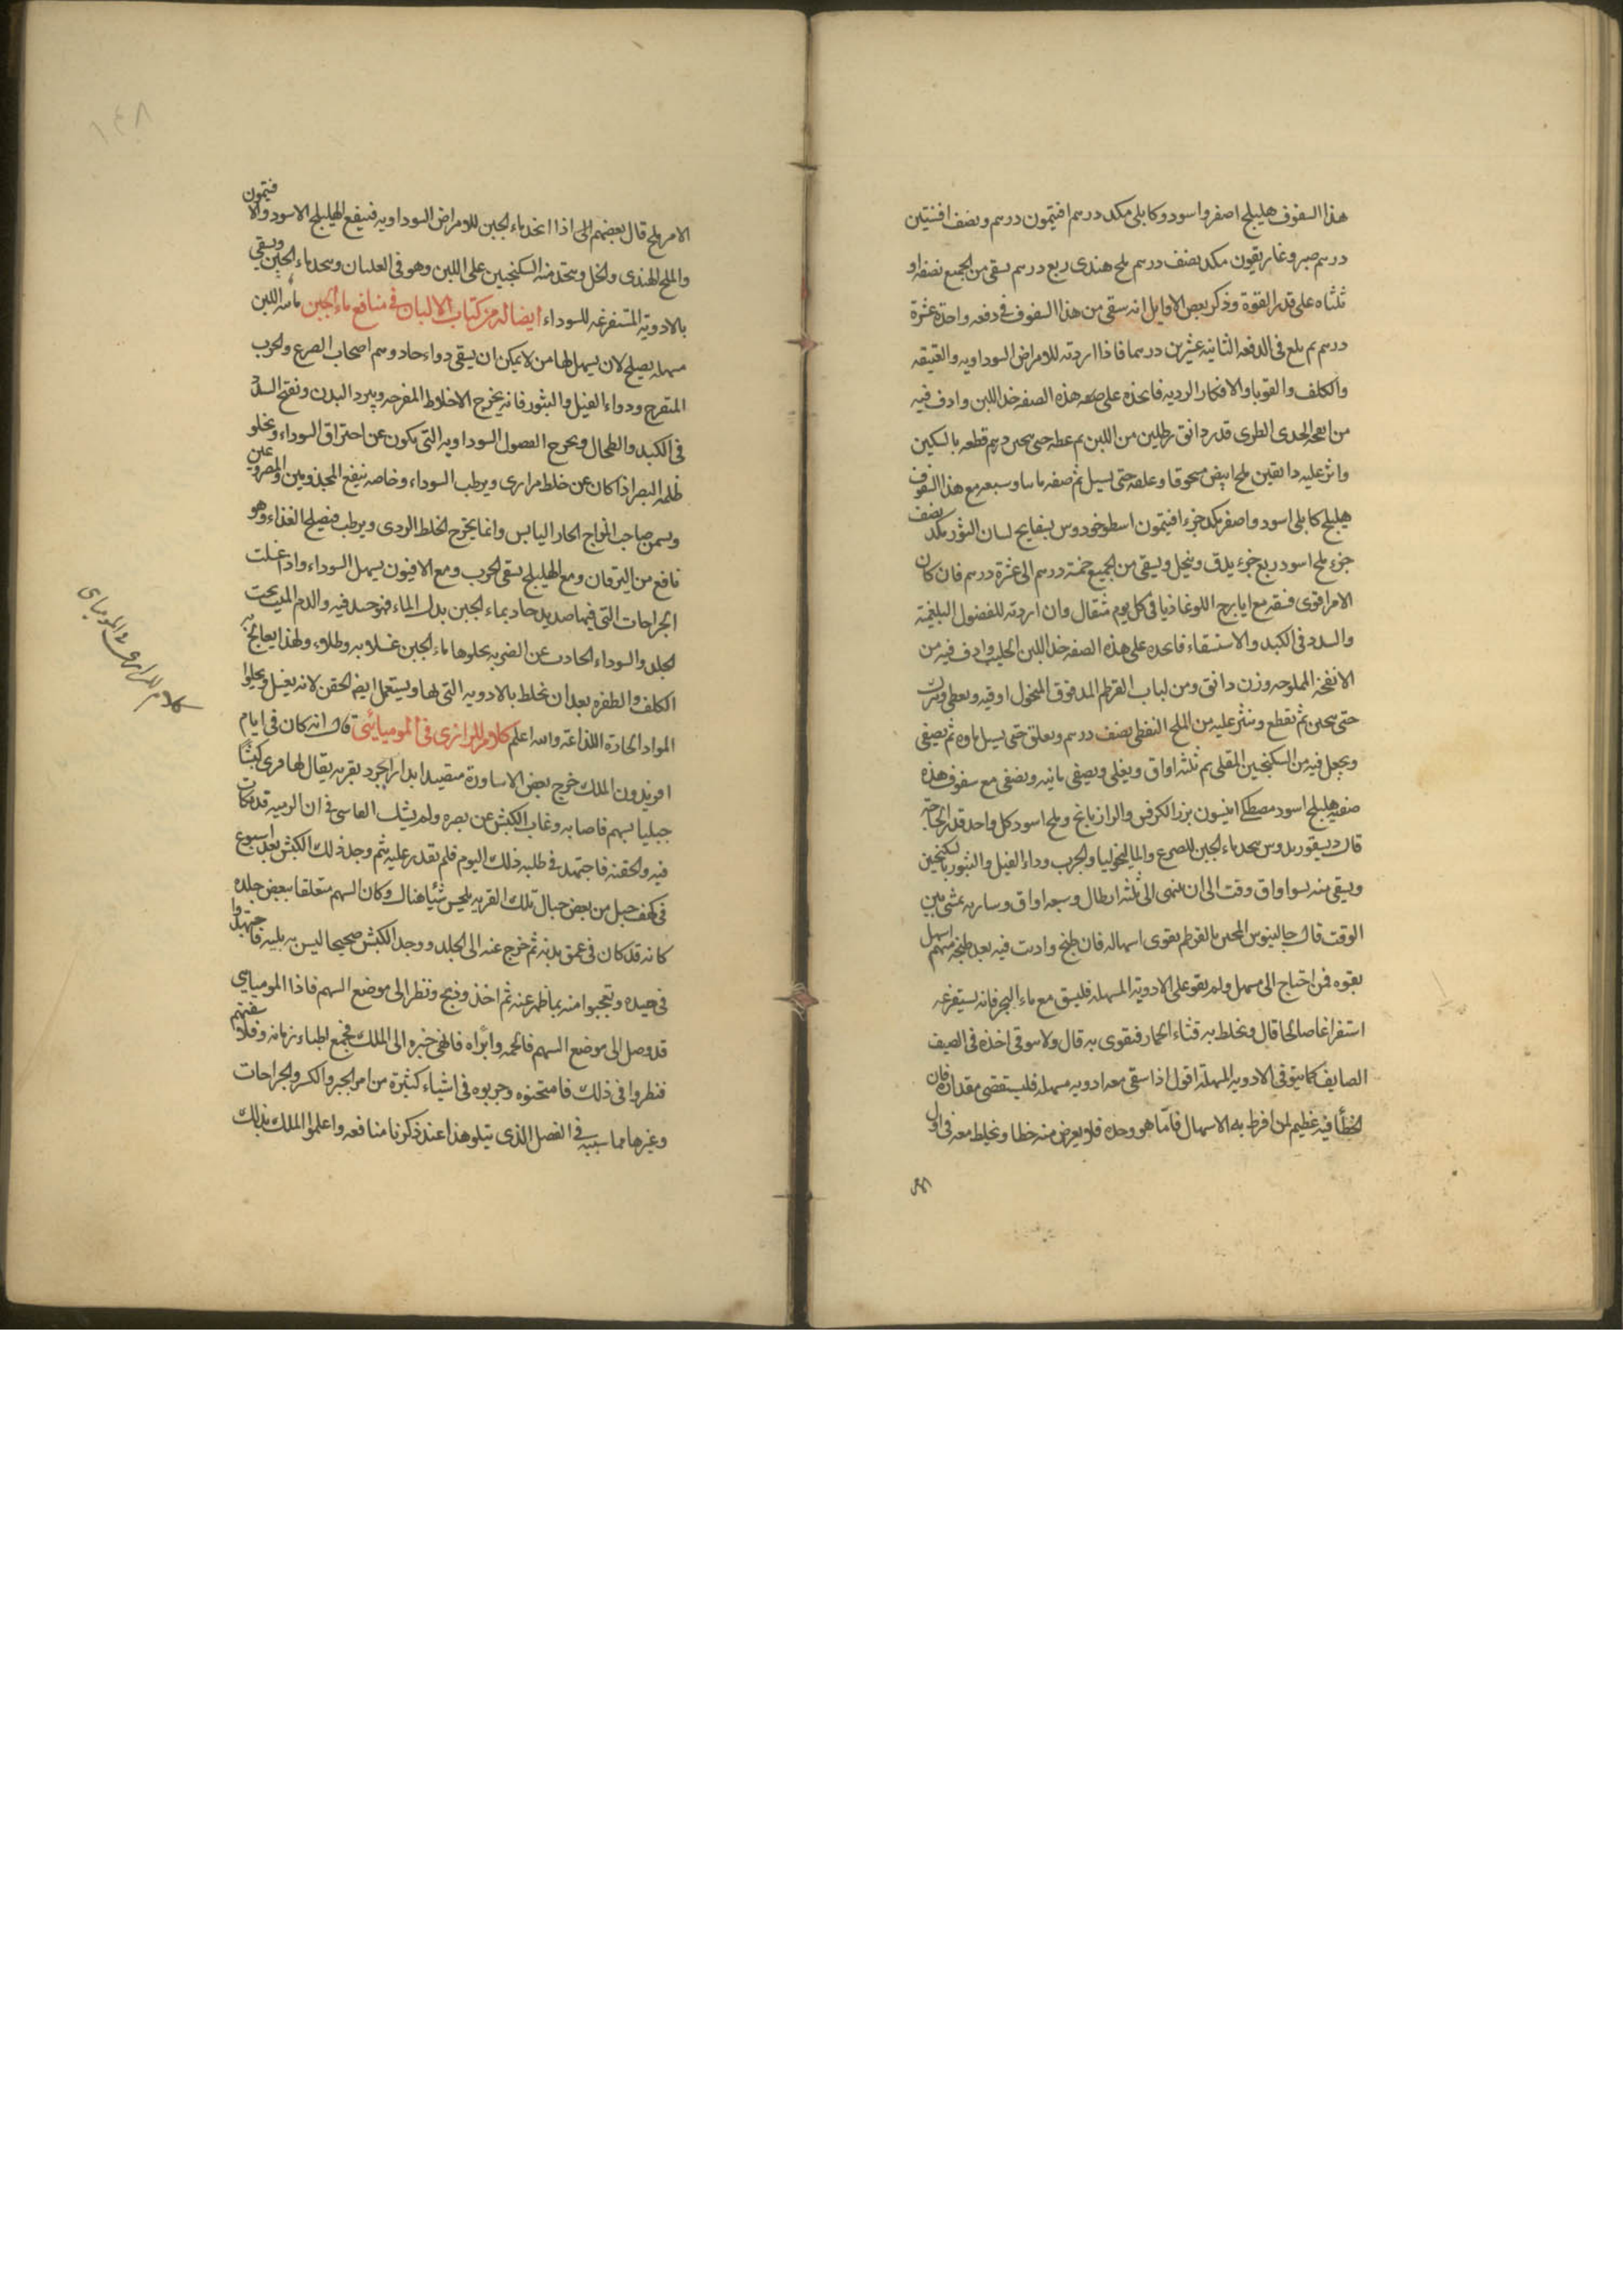 هذا السفوف هليلج اصفر واسود وكابلى مكد درهم افتيمون درهم ونصف افسنتين
درهم صبر وغاريقون مكد نصف درهم ملح هندى ربع درهم يسقى من الجميع نصفه او
ثلثاه على قدر القوة وذكر بعض الاوايل انه سقى من هذا السفوف فى دفعه واحدة عشرة
درهم ثم بلغ فى الدفعه الثانيه عشرين درهما فاذا اردته للامراض السوداويه والعتيقه
والكلف والقوبا والافكار الرديه فاتخذه على هذه الصفه خذ اللبن وادف فيه
من انفحة الجدى الطرى قدر دانق رطلين من اللبن ثم غطه حتى يتجبن ثم قطعه بالسكين
وانثر عليه دانقين ملح ابيض مسحوقا وعلقه حتى يسيل ثم صفه مع هذا السفوف
هليلج كابلى اسود واصفر مكد جزء افتيمون اسطوخودوس بسفايج لسان الثور مكد نصف
جزء ملح اسود ربع جزء يدق وينخل ويسقى من الجميع خمسة درهم الى عشرة درهم فان كان
الامر اقوى فسقه مع ايارج اللوغاذيا فى كل يوم مثقال وان اردته للفضول البلغمية
والسدد فى الكبد والاستسقاء فاتخذه على هذه الصفه خذ اللبن الحليب وادف فيه من
الانفحة المملوحه وزن دانق ومن لباب القرطم المدقوق المنخول اوقيه ويغطى ويترك
حتى يتجبن ثم تقطع وينثر عليه من الملح النفطى نصف درهم ويعلق حتى يسيل ماوه ثم يصفى
ويجعل فيه من السكنجبين المقلى ثم ثلثه اواق ويغلى ويصفى ثانيه ويصفى مع سفوف هذه
صفته هليلج اسود مصطكى انيسون بزر الكرفس والرازيانج وملح اسود كل واحد قدر الحاجة
قال ديسقوريدوس يتخذ ماء الجبن للصرع والماليخوليا والجرب وداء الفيل والبثور بالسكنجبين
ويسقى منه تسع اواق وقت الى ان ينتهى الى ثلثه ارطال وسبعه اواق وساربه يمشى بين
الوقت قال جالينوس المجبن بالقرطم يقوى اسهاله فان طبخ واديت فيه بعد طبخه اسهل
بقوه فمن احتاج الى مسهل ولم يقو على الادوية المسهله فليسق مع ماء البحر فانه يستفرغه
استفراغا صالحا قال ويخلط به قثاء الحمار فيقوى به قال ولا سوقى اخذه فى الصيف
الصايف كما يتوقى الادويه المسهله اقول اذا سقى معه ادويه مسهله فليستقصى مقداره فان
الخطأ فيه عظيم لمن افرط به الاسهال فاما هو وحده فلا يعرض منه خطا ويخلط معه فى اول
الامر
١٤٨
الامر ملح قال بعضهم الى اذا اتخذ ماء الجبن للامراض السوداويه فينفع الهليلج الاسود والافتيمون
والملح الهندى والخل ويتخذ منه السكنجبين على اللبن وهو فى الغليان ويتخذ ماء الجبن ويسقى
بالادوية المستفرغه للسوداء ايضا له من كتاب الالبان فى منافع ماء الجبن مائيه اللبن
مسهله يصلح لان يسهل بها من لا يمكن ان يسقى دواء حاد وهم اصحاب الصرع والجرب
المتقرح ودواء الفيل والبثور فانه يخرج الاخلاط المقرحه ويبرد البدن ونفتح السدد
فى الكبد والطحال ويخرج الفضول السوداويه التى يكون عن احتراق السوداء ويجلو
ظلمه البصر اذا كان عن خلط مرارى ويرطب السوداء وخاصه ينفع المجذومين والمصروعين
ويسمن صاحب المزاج الحار اليابس وانما يخرج الخلط الردى ويرطب فيصلح الغذاء وهو
نافع من اليرقان ومع الهليلج يسقى الجرب ومع الافتيون يسهل السوداء واذا غسلت
الجراحات التى فيها صديد حاد بماء الجبن بدل الماء فهو جيد فيه والدم الميت تحت
الجلد والسوداء الحادث عن الضربه يجلوها ماء الجبن غسلا به وطلاء ولهذا يعالج به
الكلف والطفره بعد ان تخلط بالادويه التى لها ويستعمل ايضا الحقن لانه يغسل ويجلوا
المواد الحادة اللذاعة والله اعلم كلام للرازى فى الموميائى قال انه كان فى ايام
افريدون الملك خرج بعض الاساورة متصيدا بدارابجرد بقريه يقال لها فرى كبشا
جبليا بسهم فاصابه وغاب الكبش عن بصره ولم يشك الفاسى فى ان الرميه قد مكنت
فيه ولحقته فاجتهد فى طلبه ذلك اليوم فلم يقدر عليه ثم وجد ذلك الكبش بعد اسبوع
فى كهف جبل من بعض جبال تلك القريه يلحس شيا هناك وكان السهم متعلقا ببعض جلده
كانه قد كان فى عمق بدنه ثم خرج عنه الى الجلد ووجد الكبش صحيحا ليس به بليه فاجتهدوا
فى صيده وتعجبوا منه بما ظهر عنه ثم اخذ وذبح ونظر الى موضع السهم فاذا الموميايى
قد وصل الى موضع السهم فالحمه وابراه فانهى خبره الى الملك فجمع اطباء زمانه وفلاسفتهم
فنظروا فى ذلك فامتحنوه وجربوه فى اشياء كثيرة من امر الجبر والكسر والجراحات
وغيرها مما سببه فى الفصل الذى يتلو هذا عند ذكرنا منافعه واعلموا الملك بذلك
كلام للرازى فى الموميايى